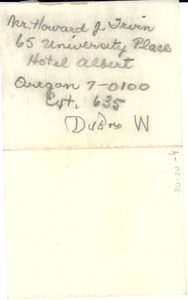 Mr. Howard J. Irvin
65 University Place
Hotel Albert
Oregon 7-0100
Ext. 635
DuBois W